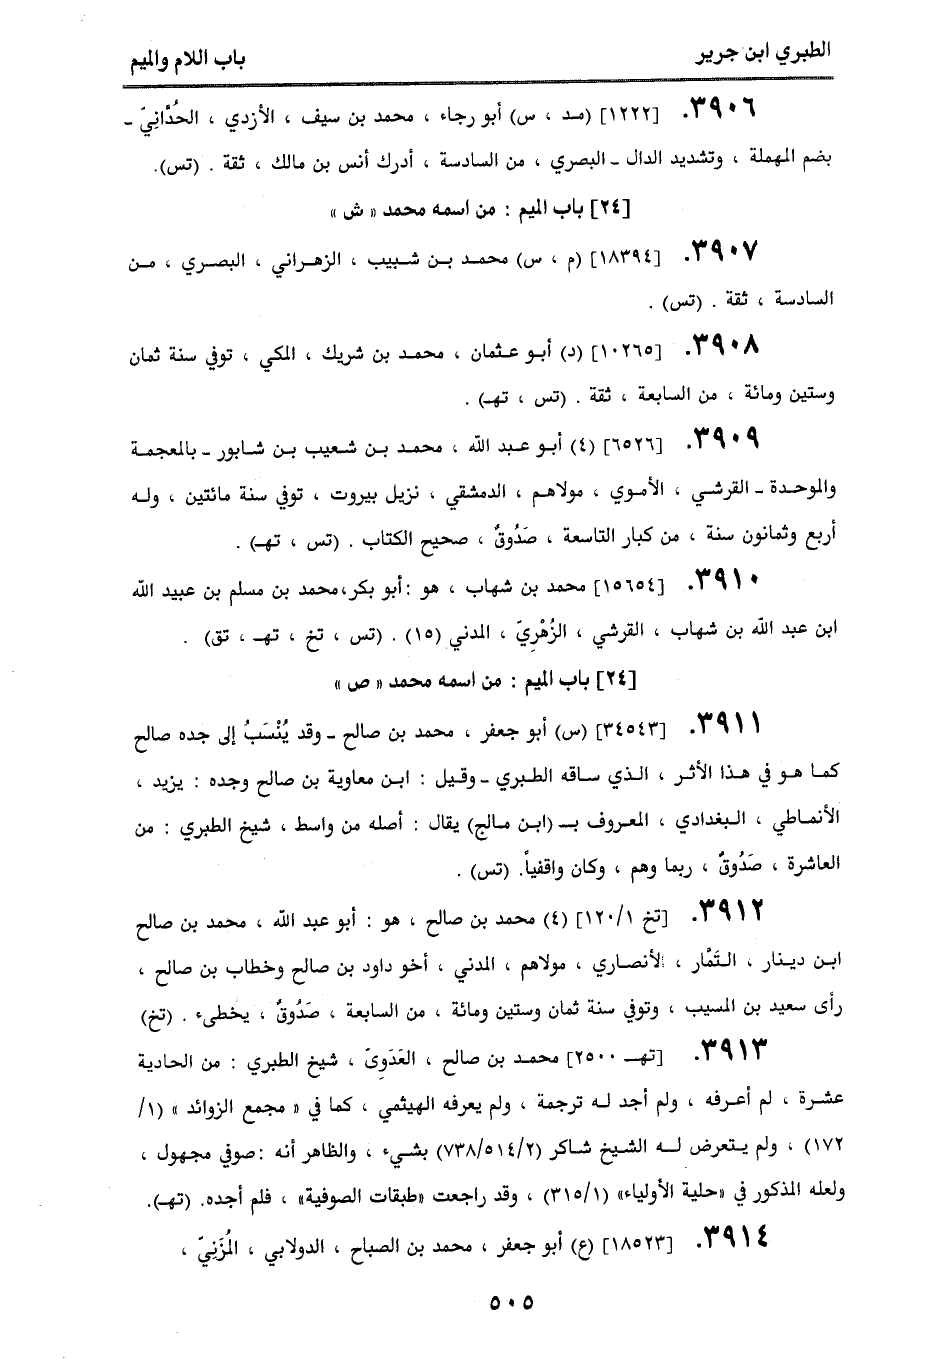 الطبري ابن جرير
باب اللام والميم
٣٩٠٦. [١٢٢٢] (مد ، س) أبو رجاء ، محمد بن سيف ، الأزدي ، الحُدَّانِيّ ـ
بضم المهملة ، وتشديد الدال ـ البصري ، من السادسة ، أدرك أنس بن مالك ، ثقة . (تس).
[٢٤] باب الميم : من اسمه محمد « ش »
٣٩٠٧. [١٨٣٩٤] (م ، س) محمد بن شبيب ، الزهراني ، البصري ، من
السادسة ، ثقة . (تس) .
٣٩٠٨. [١٠٢٦٥] (د) أبو عثمان ، محمد بن شريك ، المكي ، توفي سنة ثمان
وستين ومائة ، من السابعة ، ثقة . (تس ، تهـ) .
٣٩٠٩. [٦٥٢٦] (٤) أبو عبد الله ، محمد بن شعيب بن شابور ـ بالمعجمة
والموحدة ـ القرشي ، الأموي ، مولاهم ، الدمشقي ، نزيل بيروت ، توفي سنة مائتين ، وله
أربع وثمانون سنة ، من كبار التاسعة ، صَدُوقٌ ، صحيح الكتاب . (تس ، تهـ) .
٣٩١٠. [١٥٦٥٤] محمد بن شهاب ، هو : أبو بكر، محمد بن مسلم بن عبيد الله
ابن عبد الله بن شهاب ، القرشي ، الزُهْرِيّ ، المدني (١٥) . (تس ، تخ ، تهـ ، تق) .
[٢٤] باب الميم : من اسمه محمد « ص »
٣٩١١. [٣٤٥٤٣] (س) أبو جعفر ، محمد بن صالح ـ وقد يُنْسَبُ إلى جده صالح
كما هو في هذا الأثر ، الذي ساقه الطبري ـ وقيل : ابن معاوية بن صالح وجده : يزيد ،
الأنماطي ، البغدادي ، المعروف بـ (ابن مالج) يقال : أصله من واسط ، شيخ الطبري : من
العاشرة ، صَدُوقٌ ، ربما وهم ، وكان واقفياً. (تس) .
٣٩١٢. [تخ ١/ ١٢٠] (٤) محمد بن صالح ، هو : أبو عبد الله ، محمد بن صالح
ابن دينار ، التَمَّار ، الأنصاري ، مولاهم ، المدني ، أخو داود بن صالح وخطاب بن صالح ،
رأى سعيد بن المسيب ، وتوفي سنة ثمان وستين ومائة ، من السابعة ، صَدُوقٌ ، يخطىء . (تخ)
٣٩١٣. [تهـ ٢٥٠٠] محمد بن صالح ، العَدَوِىّ ، شيخ الطبري : من الحادية
عشرة ، لم أعرفه ، ولم أجد له ترجمة ، ولم يعرفه الهيثمي ، كما في « مجمع الزوائد » (١/
١٧٢) ، ولم يتعرض له الشيخ شاكر (٢/ ٥١٤/ ٧٣٨) بشيء ، والظاهر أنه : صوفي مجهول ،
ولعله المذكور في «حلية الأولياء» (١/ ٣١٥) ، وقد راجعت «طبقات الصوفية» ، فلم أجده. (تهـ).
٣٩١٤. [١٨٥٢٣] (ع) أبو جعفر ، محمد بن الصباح ، الدولابي ، المُزَنِيّ ،
٥٠٥